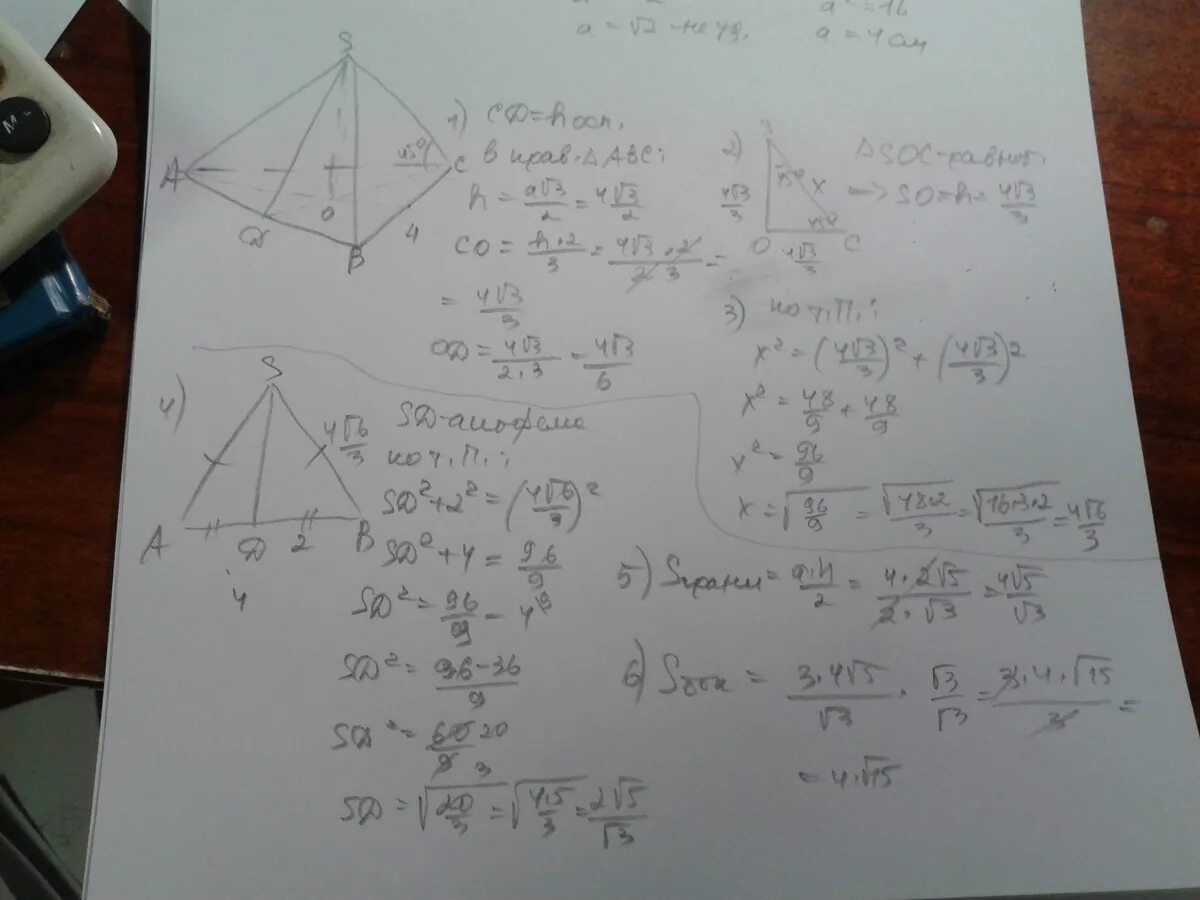 a = √2 - не уд.
a² = 16
a = 4 см
S
A
45°
C
O
D
B
4
1) CD = h осн.
в прав. △ABC:
h = a√3/2 = 4√3/2
CO = h·2/3 = 4√3·2/2·3 =
= 4√3/3
OD = 4√3/2·3 = 4√3/6
2)
△SOC - равноб.
45°
x
4√3/3
=> SO = h = 4√3/3
45°
O
C
4√3/3
3) по т.П.:
x² = (4√3/3)² + (4√3/3)²
x² = 48/9 + 48/9
x² = 96/9
x = √96/9 = √48·2/3 = √16·3·2/3 = 4√6/3
4)
S
4√6/3
A
D
2
B
4
SD - апофема
по т.П.:
SD² + 2² = (4√6/3)²
SD² + 4 = 96/9
SD² = 96/9 - 4⁹
SD² = 96-36/9
SD² = 60 20/9 3
SD = √20/3 = √4·5/3 = 2√5/√3
5) Sграни = a·h/2 = 4·2√5/2·√3 = 4√5/√3
6) Sбок = 3·4√5/√3 · √3/√3 = 3·4·√15/3 =
= 4·√15